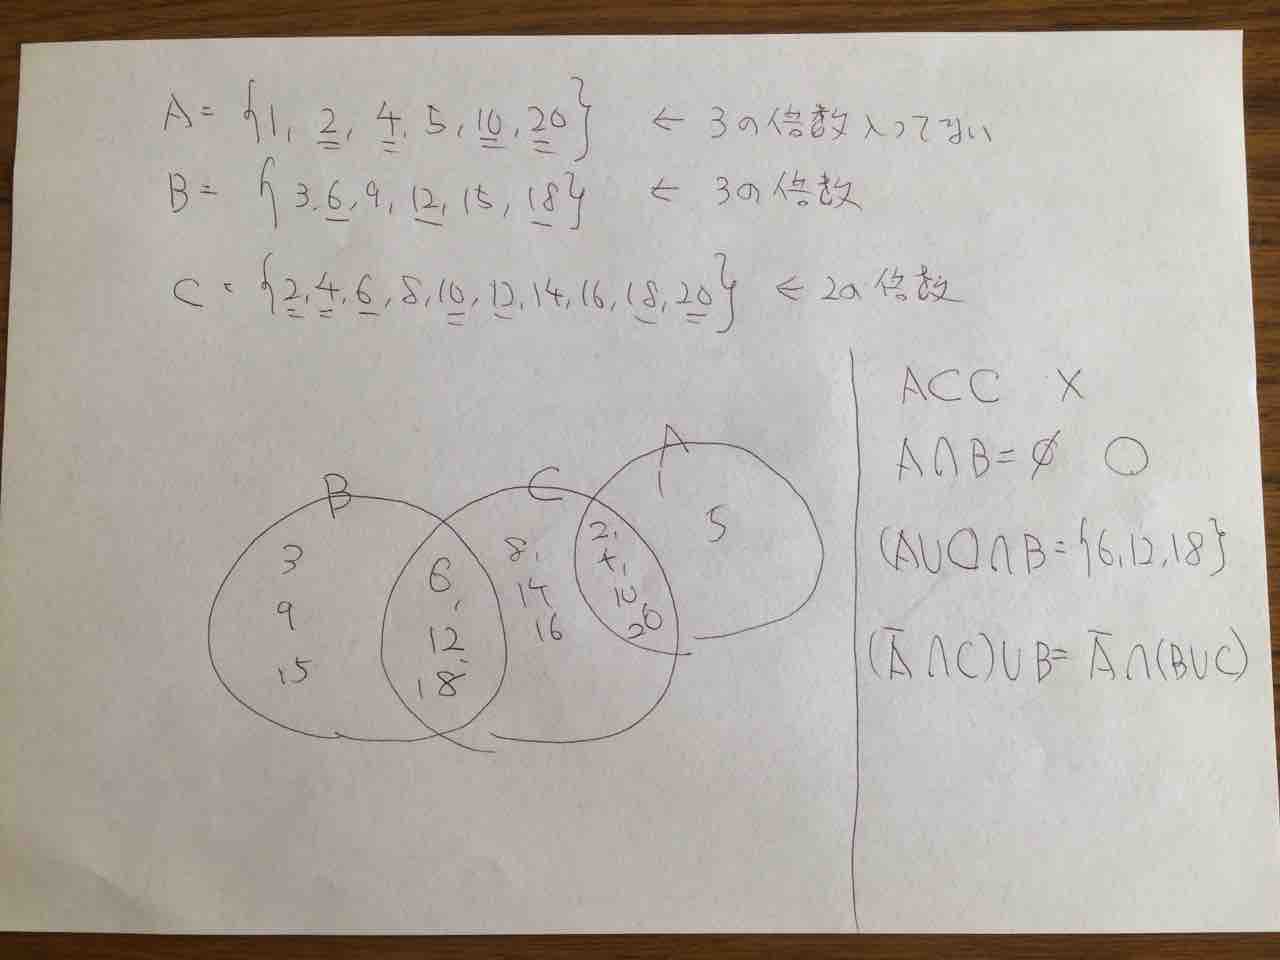 A = {1, 2, 4, 5, 10, 20} ← 3の倍数入ってない
B = {3, 6, 9, 12, 15, 18} ← 3の倍数
C = {2, 4, 6, 8, 10, 12, 14, 16, 18, 20} ← 2の倍数
B
3
9
15
6,
12
18
C
8,
14
16
2,
4,
10
20
A
1
5
A⊂C ×
A∩B=∅ ○
(A∪C)∩B={6,12,18}
(A̅∩C)∪B=A̅∩(B∪C)